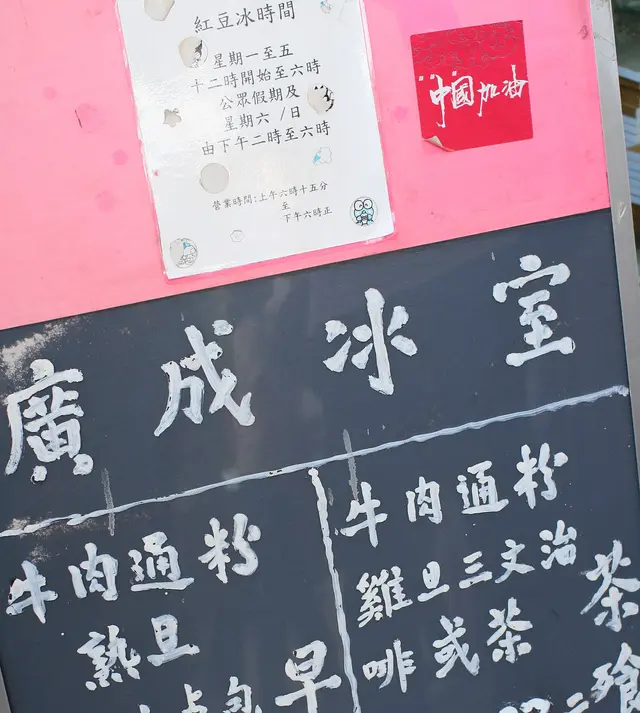 紅豆冰時間
星期一至五
十二時開始至六時
公眾假期及
星期六/日
由下午二時至六時
營業時間:上午六時十五分
至
下午六時正
"中國加油"
廣成冰室
牛肉通粉
熟旦
早
牛肉通粉
雞旦三文治
啡或茶
茶